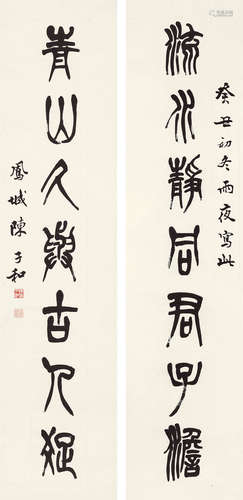 癸丑初冬雨夜寫此
流水靜同君子澹
青山久與古人
鳳城陳子和